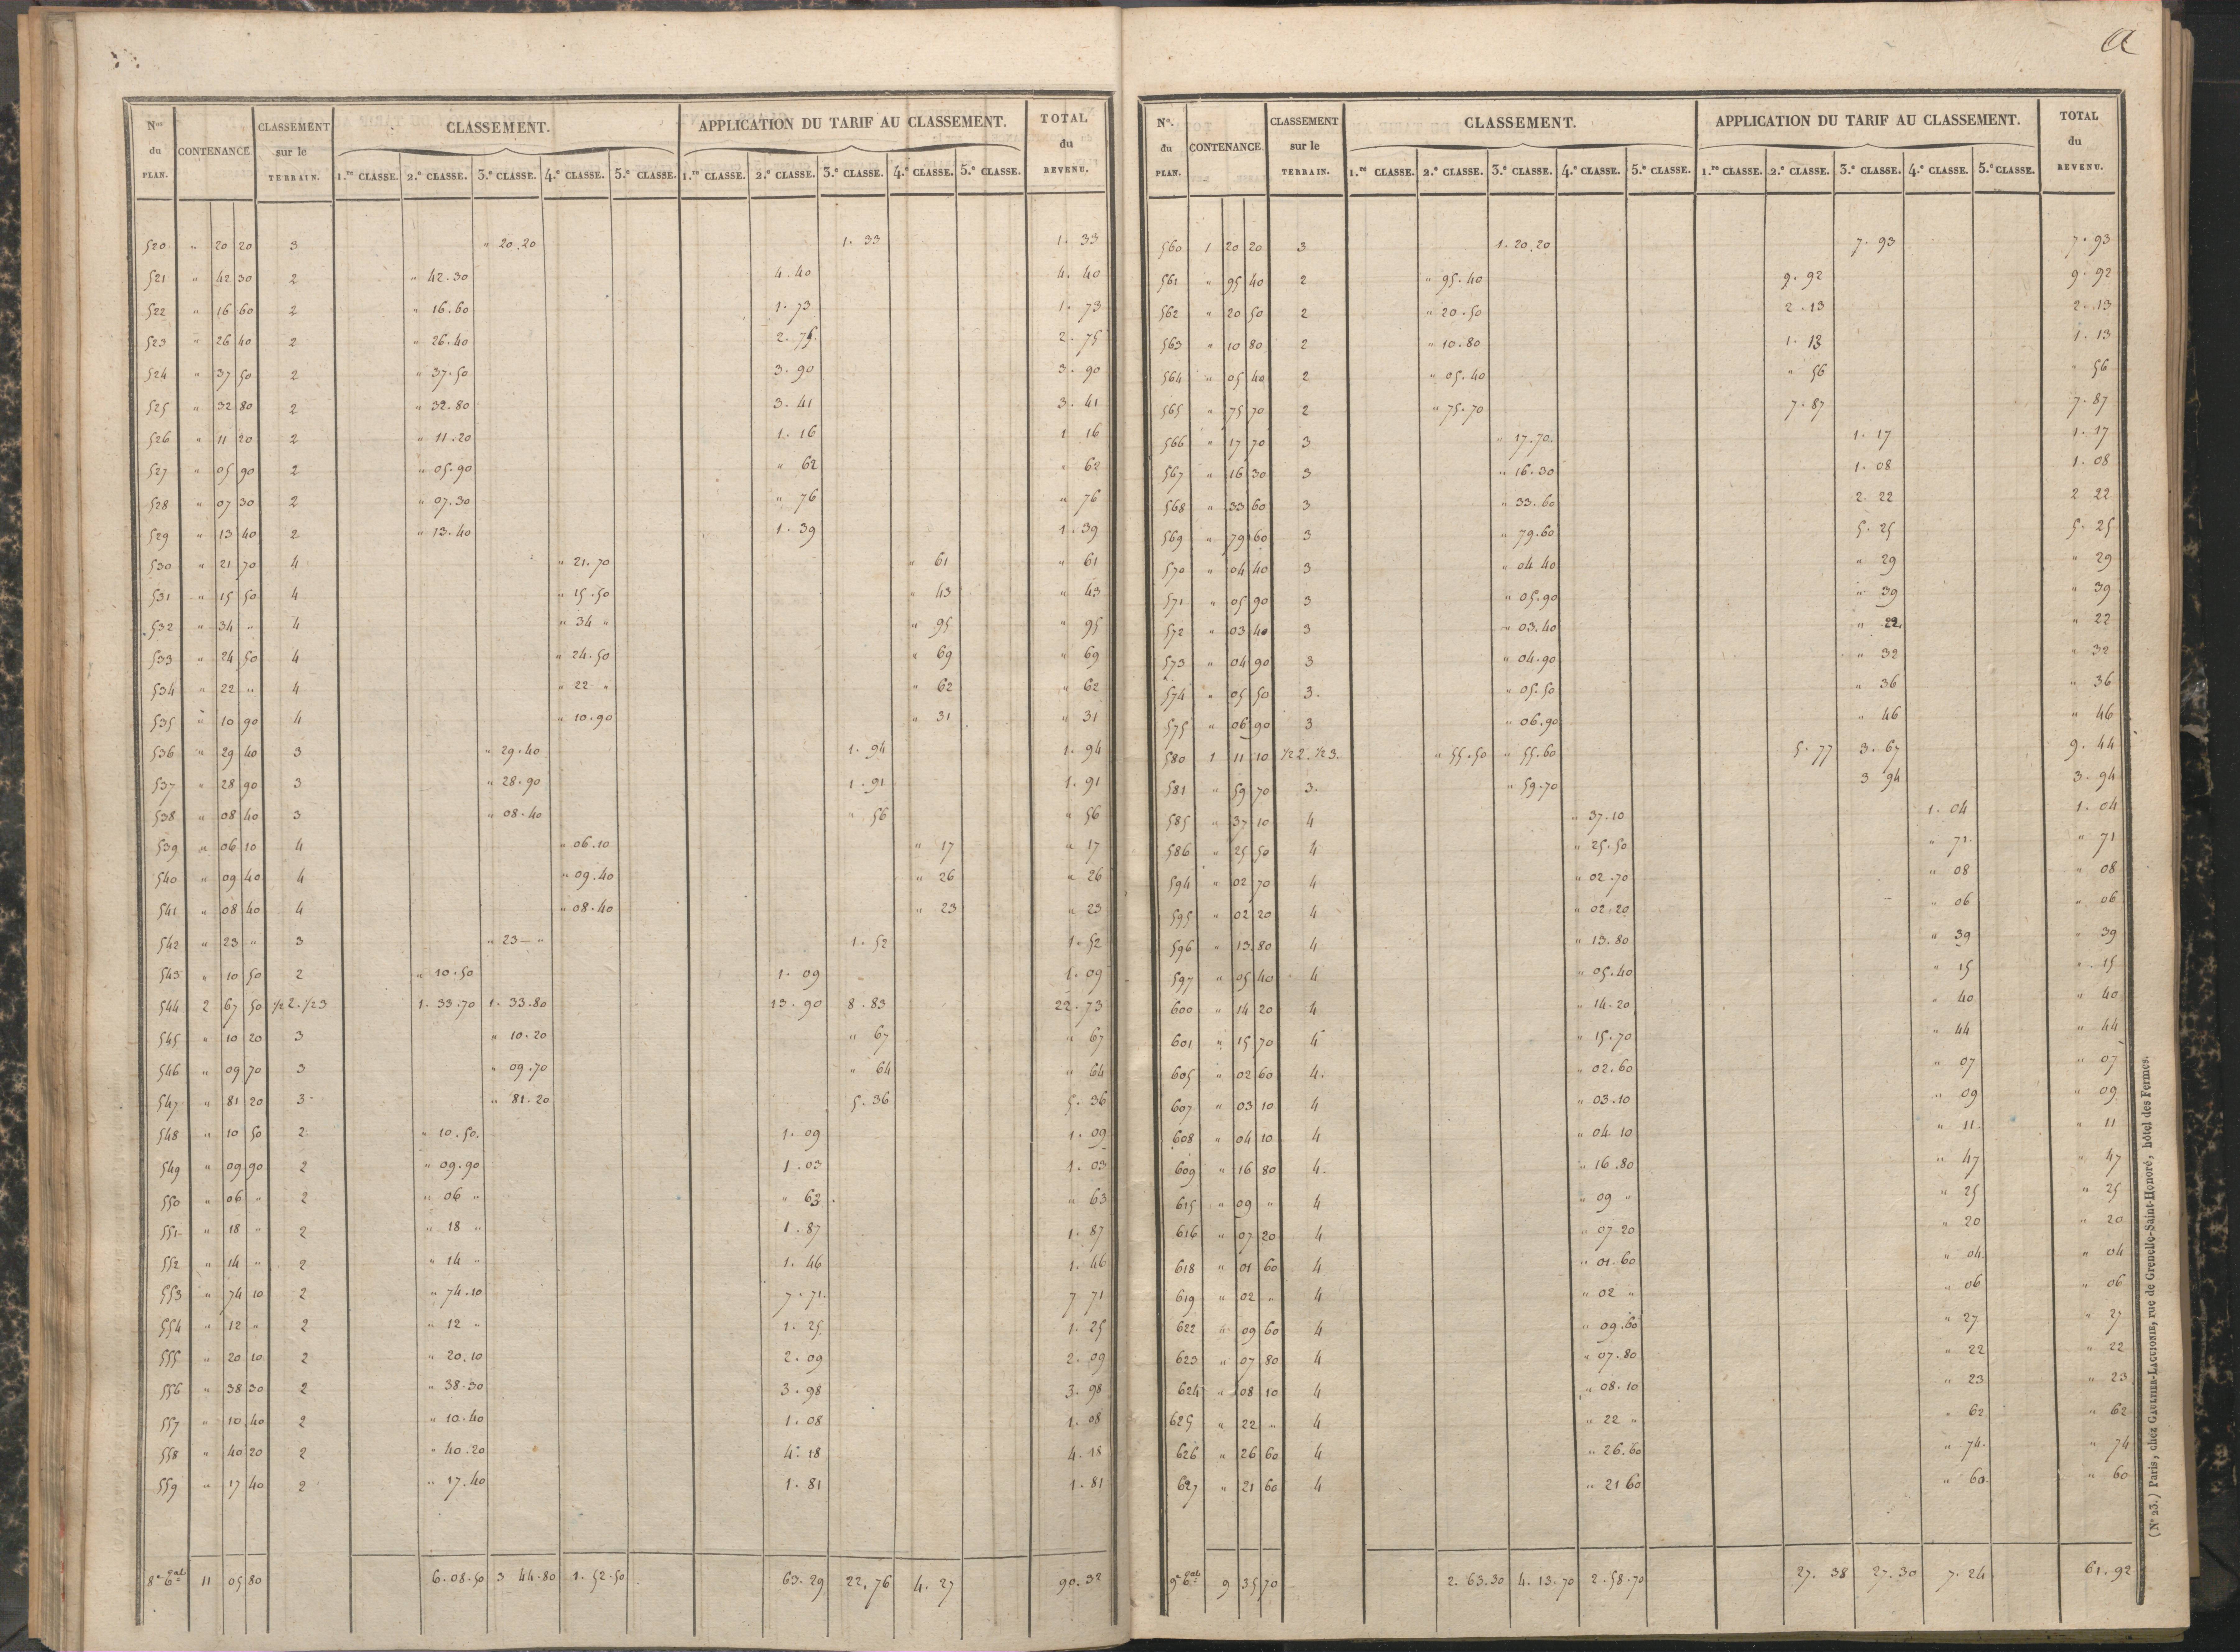 Nos du PLAN. CONTENANCE. CLASSEMENT sur le TERRAIN. CLASSEMENT. APPLICATION DU TARIF AU CLASSEMENT. TOTAL du REVENU.
1.re CLASSE. 2.e CLASSE. 3.e CLASSE. 4.e CLASSE. 5.e CLASSE. 1.re CLASSE. 2.e CLASSE. 3.e CLASSE. 4.e CLASSE. 5.e CLASSE.
520 " 20 20 3 " 20.20 1. 33 1. 33
521 " 42 30 2 " 42.30 4.40 4. 40
522 " 16 60 2 " 16.60 1.73 1. 73
523 " 26 40 2 " 26.40 2.75. 2. 75
524 " 37 50 2 " 37.50 3.90 3. 90
525 " 32 80 2 " 32.80 3.41 3. 41
526 " 11 20 2 " 11.20 1.16 1 16
527 " 05 90 2 " 05.90 " 62 " 62
528 " 07 30 2 " 07.30 " 76 " 76
529 " 13 40 2 " 13.40 1.39 1.39
530 " 21 70 4 " 21.70 " 61 " 61
531 " 15 50 4 " 15.50 " 43 " 43
532 " 34 " 4 " 34 " " 95 " 95
533 " 24 50 4 " 24.50 " 69 " 69
534 " 22 " 4 " 22 " " 62 " 62
535 " 10 90 4 " 10.90 " 31 " 31
536 " 29 40 3 " 29.40 1. 94 1. 94
537 " 28 90 3 " 28.90 1.91 1.91
538 " 08 40 3 " 08.40 " 56 " 56
539 " 06 10 4 " 06.10 " 17 " 17
540 " 09 40 4 " 09.40 " 26 " 26
541 " 08 40 4 " 08.40 " 23 " 23
542 " 23 " 3 " 23 - " 1. 52 1.52
543 " 10 50 2 " 10.50 1. 09 1.09
544 2 67 50 1/2 2. 1/2 3 1. 33.70 1. 33.80 13.90 8.83 22.73
545 " 10 20 3 " 10.20 " 67 " 67
546 " 09 70 3 " 09.70 " 64 " 64
547 " 81 20 3 " 81.20 5.36 5.36
548 " 10 50 2 " 10.50. 1.09 1.09
549 " 09 90 2 " 09.90 1.03 1.03
550 " 06 " 2 " 06 " " 63 " 63
551 " 18 " 2 " 18 " 1.87 1.87
552 " 14 " 2 " 14 " 1.46 1.46
553 " 74 10 2 " 74.10 7.71 7 71
554 " 12 " 2 " 12 " 1.25 1.25
555 " 20 10 2 " 20.10 2.09 2.09
556 " 38 30 2 " 38.30 3.98 3.98
557 " 10 40 2 " 10.40 1.08 1.08
558 " 40 20 2 " 40.20 4.18 4.18
559 " 17 40 2 " 17.40 1.81 1.81
11 05 80 6.08.50 3 44.80 1. 52.50 63.29 22,76 4. 27 90.32
a
No. du PLAN. CONTENANCE. CLASSEMENT sur le TERRAIN. CLASSEMENT. APPLICATION DU TARIF AU CLASSEMENT. TOTAL du REVENU.
1.re CLASSE. 2.e CLASSE. 3.e CLASSE. 4.e CLASSE. 5.e CLASSE. 1.re CLASSE. 2.e CLASSE. 3.e CLASSE. 4.e CLASSE. 5.e CLASSE.
560 1 20 20 3 1. 20.20 7. 93 7. 93
561 " 95 40 2 " 95.40 9. 92 9. 92
562 " 20 50 2 " 20.50 2. 13 2. 13
563 " 10 80 2 " 10.80 1. 13 1. 13
564 " 05 40 2 " 05.40 " 56 " 56
565 " 75 70 2 " 75.70 7.87 7.87
566 " 17 70 3 " 17.70. 1. 17 1. 17
567 " 16 30 3 " 16.30 1. 08 1. 08
568 " 33 60 3 " 33.60 2. 22 2 22
569 " 79 60 3 " 79.60 5.25 5.25
570 " 04 40 3 " 04 40 " 29 " 29
571 " 05 90 3 " 05.90 " 39 " 39
572 " 03 40 3 " 03.40 " 22. " 22
573 " 04 90 3 " 04.90 " 32 " 32
574 " 05 50 3. " 05.50 " 36 " 36
575 " 06 90 3 " 06.90 " 46 " 46
580 1 11 10 1/2 2. 1/2 3. " 55.50 " 55.60 5.77 3.67 9. 44
581 " 59 70 3. " 59.70 3 94 3. 94
585 " 37 10 4 " 37.10 1. 04 1. 04
586 " 25 50 4 " 25.50 " 71. " 71
594 " 02 70 4 " 02.70 " 08 " 08
595 " 02 20 4 " 02.20 " 06 " 06
596 " 13 80 4 " 13.80 " 39 " 39
597 " 05 40 4 " 05.40 " 15 " 15
600 " 14 20 4 " 14.20 " 40 " 40
601 " 15 70 4 " 15.70 " 44 " 44
605 " 02 60 4. " 02.60 " 07 " 07
607 " 03 10 4 " 03.10 " 09 " 09
608 " 04 10 4 " 04 10 " 11. " 11
609 " 16 80 4. " 16.80 " 47 " 47
615 " 09 " 4 " 09 " " 25 " 25
616 " 07 20 4 " 07.20 " 20 " 20
618 " 01 60 4 " 01.60 " 04 " 04
619 " 02 " 4 " 02 " " 06 " 06
622 " 09 60 4 " 09.60 " 27 " 27
623 " 07 80 4 " 07.80 " 22 " 22
624 " 08 10 4 " 08.10 " 23 " 23
625 " 22 " 4 " 22 " " 62 " 62
626 " 26 60 4 " 26.60 " 74. " 74
627 " 21 60 4 " 21 60 " 60. " 60
9 35 70 2. 63.30 4. 13. 70 2.58.70 27. 38 27.30 7. 24 61.92
(No 23.) Paris, chez GAULTIER-LAGUIONIE, rue de Grenelle-Saint-Honoré, hôtel des Fermes.